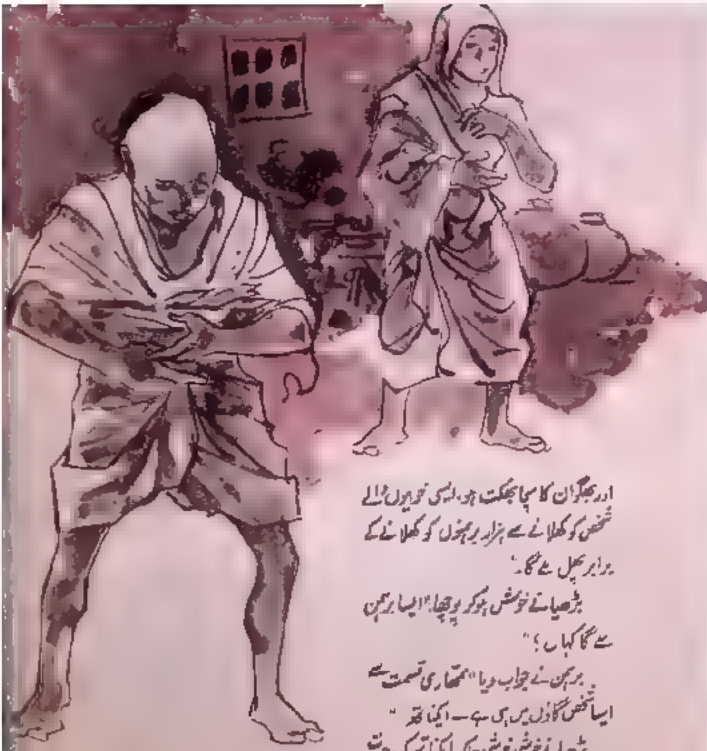 اور بھگوان کا سچا بھگت ہو۔ ایسی خوبیوں والے
شخص کو کھلانے سے ہزار برہمنوں کو کھلانے کے
برابر پھل ملے گا۔"
بڑھیا نے خوش ہوکر پوچھا، "ایسا برہمن
ملے گا کہاں؟"
برہمن نے جواب دیا "تمھاری قسمت سے
ایسا شخص گاؤں میں ہی ہے — ایکناتھ"
بڑھیا نے خوش خوش